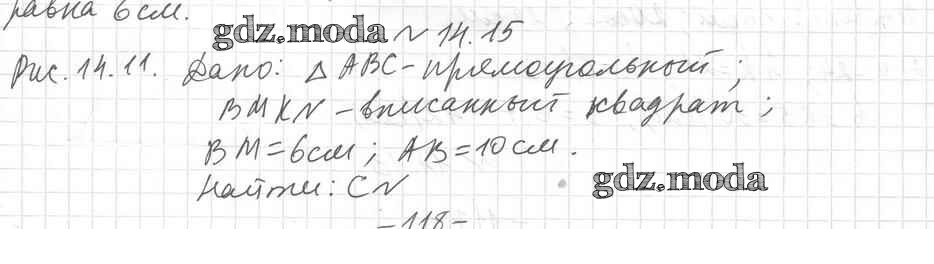 равна 6 см.
gdz.moda № 14.15
Рис. 14.11. Дано: △ ABC - прямоугольный;
BMKN - вписанный квадрат;
BM = 6 см; AB = 10 см.
Найти: CN
gdz.moda
- 118 -